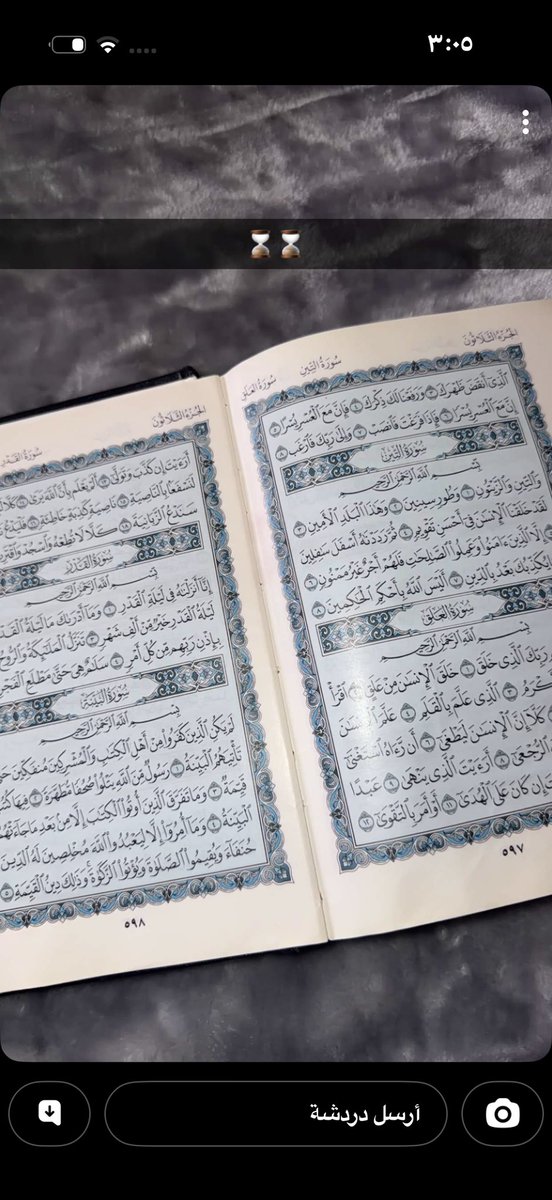 ٣:٠٥
الجزء الثلاثون
سورة التين
سورة العلق
ٱلَّذِىٓ أَنقَضَ ظَهْرَكَ ٣ وَرَفَعْنَا لَكَ ذِكْرَكَ ٤ فَإِنَّ مَعَ ٱلْعُسْرِ يُسْرًا ٥
إِنَّ مَعَ ٱلْعُسْرِ يُسْرًا ٦ فَإِذَا فَرَغْتَ فَٱنصَبْ ٧ وَإِلَىٰ رَبِّكَ فَٱرْغَب ٨
سُورَةُ التِّينِ
بِسْمِ ٱللَّهِ ٱلرَّحْمَٰنِ ٱلرَّحِيمِ
وَٱلتِّينِ وَٱلزَّيْتُونِ ١ وَطُورِ سِينِينَ ٢ وَهَٰذَا ٱلْبَلَدِ ٱلْأَمِينِ ٣
لَقَدْ خَلَقْنَا ٱلْإِنسَٰنَ فِىٓ أَحْسَنِ تَقْوِيمٍ ٤ ثُمَّ رَدَدْنَٰهُ أَسْفَلَ سَٰفِلِينَ
٥ إِلَّا ٱلَّذِينَ ءَامَنُوا۟ وَعَمِلُوا۟ ٱلصَّٰلِحَٰتِ فَلَهُمْ أَجْرٌ غَيْرُ مَمْنُونٍ ٦
يُكَذِّبُكَ بَعْدُ بِٱلدِّينِ ٧ أَلَيْسَ ٱللَّهُ بِأَحْكَمِ ٱلْحَٰكِمِينَ ٨
سُورَةُ العَلَقِ
بِسْمِ ٱللَّهِ ٱلرَّحْمَٰنِ ٱلرَّحِيمِ
رَبِّكَ ٱلَّذِى خَلَقَ ١ خَلَقَ ٱلْإِنسَٰنَ مِنْ عَلَقٍ ٢ ٱقْرَأْ
ٱلَّذِى عَلَّمَ بِٱلْقَلَمِ ٤ عَلَّمَ ٱلْإِنسَٰنَ
كَلَّآ إِنَّ ٱلْإِنسَٰنَ لَيَطْغَىٰٓ ٦ أَن رَّءَاهُ ٱسْتَغْنَىٰٓ
ٱلرُّجْعَىٰٓ ٨ أَرَءَيْتَ ٱلَّذِى يَنْهَىٰ ٩ عَبْدًا
إِن كَانَ عَلَى ٱلْهُدَىٰٓ ١١ أَوْ أَمَرَ بِٱلتَّقْوَىٰٓ ١٢
٥٩٧
الجزء الثلاثون
سورة القدر
أَرَءَيْتَ إِن كَذَّبَ وَتَوَلَّىٰٓ ١٣ أَلَمْ يَعْلَم بِأَنَّ ٱللَّهَ يَرَىٰ ١٤ كَلَّا
لَنَسْفَعًۢا بِٱلنَّاصِيَةِ ١٥ نَاصِيَةٍ كَٰذِبَةٍ خَاطِئَةٍ ١٦ فَلْيَدْعُ
سَنَدْعُ ٱلزَّبَانِيَةَ ١٨ كَلَّا لَا تُطِعْهُ وَٱسْجُدْ وَٱقْتَرِب
سُورَةُ القَدْرِ
بِسْمِ ٱللَّهِ ٱلرَّحْمَٰنِ ٱلرَّحِيمِ
إِنَّآ أَنزَلْنَٰهُ فِى لَيْلَةِ ٱلْقَدْرِ ١ وَمَآ أَدْرَىٰكَ مَا لَيْلَةُ ٱلْقَدْرِ
لَيْلَةُ ٱلْقَدْرِ خَيْرٌ مِّنْ أَلْفِ شَهْرٍ ٣ تَنَزَّلُ ٱلْمَلَٰٓئِكَةُ وَٱلرُّوحُ
بِإِذْنِ رَبِّهِم مِّن كُلِّ أَمْرٍ ٤ سَلَٰمٌ هِىَ حَتَّىٰ مَطْلَعِ ٱلْفَجْرِ
سُورَةُ البَيِّنَةِ
بِسْمِ ٱللَّهِ ٱلرَّحْمَٰنِ ٱلرَّحِيمِ
لَمْ يَكُنِ ٱلَّذِينَ كَفَرُوا۟ مِنْ أَهْلِ ٱلْكِتَٰبِ وَٱلْمُشْرِكِينَ مُنفَكِّينَ حَتَّىٰ
تَأْتِيَهُمُ ٱلْبَيِّنَةُ ١ رَسُولٌ مِّنَ ٱللَّهِ يَتْلُوا۟ صُحُفًا مُّطَهَّرَةً ٢ فِيهَا كُتُبٌ
قَيِّمَةٌ ٣ وَمَا تَفَرَّقَ ٱلَّذِينَ أُوتُوا۟ ٱلْكِتَٰبَ إِلَّا مِنۢ بَعْدِ مَا جَآءَتْهُمُ
ٱلْبَيِّنَةُ ٤ وَمَآ أُمِرُوٓا۟ إِلَّا لِيَعْبُدُوا۟ ٱللَّهَ مُخْلِصِينَ لَهُ ٱلدِّينَ
حُنَفَآءَ وَيُقِيمُوا۟ ٱلصَّلَوٰةَ وَيُؤْتُوا۟ ٱلزَّكَوٰةَ وَذَٰلِكَ دِينُ ٱلْقَيِّمَةِ ٥
٥٩٨
أرسل دردشة